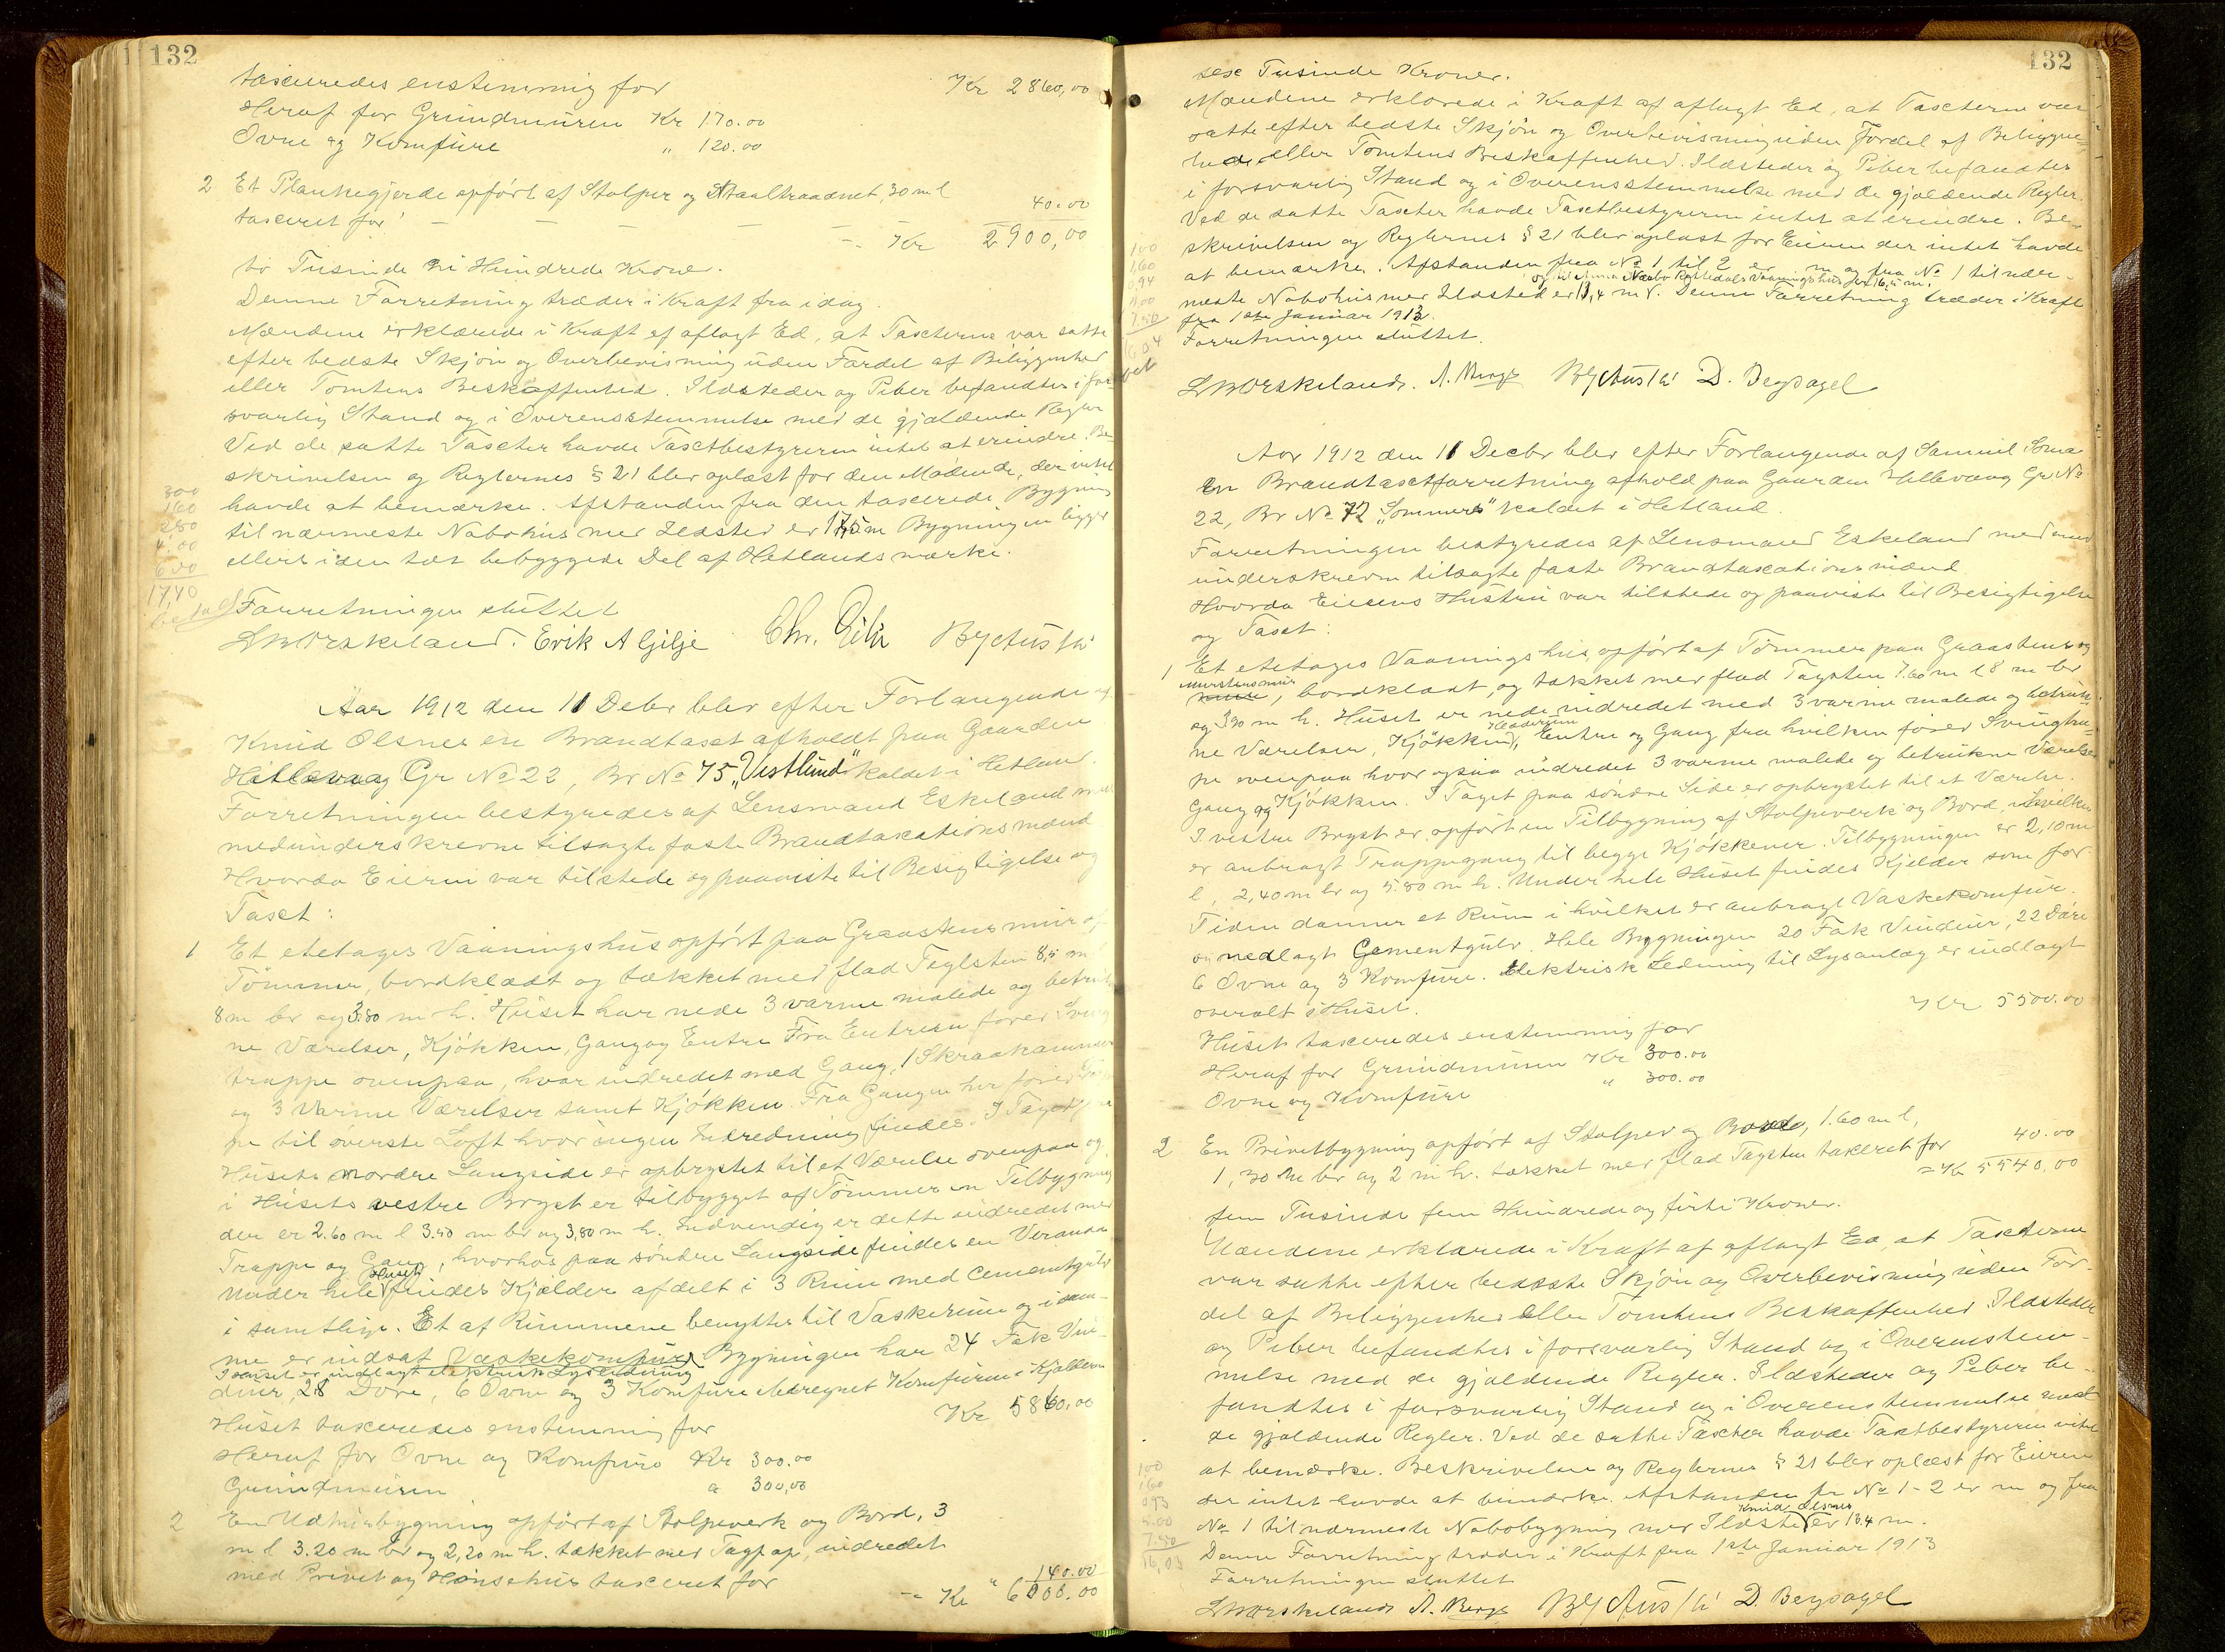 132
taxeredes enstemmig for Kr 2860,00
Heraf for Grundmuren Kr 170.00
Ovne og Komfure " 120.00
2 Et Plankegjerde opført af Stolper og Staaltraadnet, 30 m l
taxeret for! — — — — 40.00
-. Kr 2900,00
to Tusinde ni Hundrede Kroner.
Denne Forretning træder i Kraft fra idag.
Mændene erklærede i Kraft af aflagt Ed, at Taxterne var satte
efter bedste Skjøn og Overbevisning uden Fordel af Beliggenhed
eller Tomtens Beskaffenhed. Ildsteder og Piber befandtes i for-
svarlig Stand og i Overensstemmelse med de gjældende Regler
Ved de satte Taxter havde Taxtbestyreren intet at erindre. Be-
skrivelsen og Reglernes § 21 blev oplæst for den Mødende, der intet
havde at bemærke. Afstanden fra den taxerede Bygning
til nærmeste Nabohus med Ildsted er 17,5 m Bygningen ligger
ellers i den tæt bebyggede Del af Hetlandsmarke.
300
160
280
4.00
600
17,40
betalt
Forretningen sluttet
Erik A Gilje Chr.
Aar 1912 den 11 Debr blev efter Forlangende af
Knud Olsnes en Brandtaxt afholdt paa Gaarden
Hillevaag Gr No 22, Br No 75 „Vestlund" kaldet i Hetland.
Forretningen bestyredes af Lensmand Eskeland med
medunderskrevne tilsagte faste Brandtaxationsmænd
Hvorda Eieren var tilstede og paaviste til Besigtigelse og
Taxt:
1 Et etetages Vaaningshus opført paa Graastensmur af
Tømmer, bordklædt og tækket med flad Teglsten 8,5 m l
8 m br og 3.80 m h. Huset har nede 3 varme malede og betruk-
ne Værelser, Kjøkken, Gang og Entre Fra Entreen fører Sving
trappe ovenpaa, hvor indredet med Gang, 1 Skraakammer
og 3 varme Værelser samt Kjøkken. Fra Gangen her fører
pe til øverste Loft hvor ingen Indredning findes. I Taget paa
Husets nordre Langside er opbrystet til et Værelse ovenpaa og
i Husets vestre Bryst er tilbygget af Tømmer en Tilbygning
der er 2.60 m l 3.50 m br og 3,80 m h. Indvendig er dette indredet med
Trappe og Gang, hvorhos paa søndre Langside findes en Veranda
Under hele Huset findes Kjælder afdelt i 3 Rum med Cementgulv
i samtlige. Et af Rummene benyttes til Vaskerum og i sam-
me er indsat Vaskekomfur. Bygningen har 24 Fak Vin-
I huset er indlagt elektrisk Lysledning
duer, 28 Døre, 6 Ovne og 3 Komfure iberegnet Komfuren i Kjælderen
Huset taxeredes enstemmig for Kr 5860,00
Heraf for Ovne og Komfure Kr 300.00
Grundmuren " 300,00
2 En Udhusbygning opført af Stolpeverk og Bord, 3
m l 3.20 m br og 2,20 m h. tækket med Tagpap, indredet
med Privet og Hønsehus taxeret for " 140.00
-- Kr 6000.00
132
sex Tusinde Kroner.
Mændene erklærede i Kraft af aflagt Ed, at Taxterne var
satte efter bedste Skjøn og Overbevisning uden Fordel af Beliggen-
hed eller Tomtens Beskaffenhed. Ildsteder og Piber befandtes
i forsvarlig Stand og i Overensstemmelse med de gjældende Regler.
Ved de satte Taxter havde Taxtbestyreren intet at erindre. Be-
skrivelsen og Reglernes § 21 blev oplæst for Eieren der intet havde
at bemærke. Afstanden fra No 1 til 2 er m og fra No 1 til nær-
meste Nabohus med Ildsted er 13,4 m. Denne Forretning træder i Kraft
fra 1ste Januar 1913.
Forretningen sluttet.
100
160
0,94
5,00
7.50
A. Berge D. Bergsagel
Aar 1912 den 11 Decbr blev efter Forlangende af Samuel Soma
en Brandtaxtforretning afhold paa Gaarden Hillevaag Gr No
22, Br No 72 „Sommero" kaldet i Hetland.
Forretningen bestyredes af Lensmand Eskeland med med
underskrevne tilsagte faste Brandtaxationsmænd
Hvorda Eierens Hustru var tilstede og paaviste til Besigtigelse
og Taxt:
1 Et etetages Vaaningshus, opført af Tømmer paa Graastens og
Murstensmur, bordklædt, og tækket med flad Tagsten 7.60 m l 8 m br
og 3,90 m h. Huset er nede indredet med 3 varme malede og betruk-
ne Værelser, Kjøkken, Entre og Gang fra hvilken fører Svingtrap-
pe ovenpaa hvor ogsaa indredet 3 varme malede og betrukne Værelser
Gang og Kjøkken. I Taget paa søndre Side er opbrystet til et Værelse.
I vestre Bryst er opført en Tilbygning af Stolpeverk og Bord, i hvilken
er anbragt Trappegang til begge Kjøkkener. Tilbygningen er 2,10 m
l, 2,40 m br og 5.80 m h. Under hele Huset findes Kjelder som for
Tiden danner et Rum i hvilket er anbragt Vaskekomfur.
og nedlagt Cementgulv. Hele Bygningen 20 Fak Vinduer, 22 Døre
6 Ovne og 3 Komfure. Elektrisk Ledning til Lysanlæg er indlagt
overalt i Huset.
Huset taxeredes enstemmig for Kr 5500.00
Heraf for Grundmuren Kr 300.00
Ovne og Komfure " 300.00
2 En Privetbygning opført af Stolper og Bord, 1.60 m l,
1,30 m br og 2 m h. tækket med flad Tagsten taxeret for 40.00
= Kr 5540,00
fem Tusinde fem Hundrede og firti Kroner.
Mændene erklærede i Kraft af aflagt Ed, at Taxterne
var satte efter bedste Skjøn og Overbevisning uden For-
del af Beliggenhed eller Tomtens Beskaffenhed. Ildsteder
og Piber befandtes i forsvarlig Stand og i Overensstem-
melse med de gjældende Regler. Ildsteder og Piber be-
fandtes i forsvarlig Stand og i Overenstemmelse med
de gjældende Regler. Ved de satte Taxter havde Taxtbestyreren intet
at bemærke. Beskrivelsen og Reglernes § 21 blev oplæst for Eieren
der intet havde at bemærke. Afstanden fr No 1-2 er m og fra
Knud Olsnes
No 1 til nærmeste Nabobygning med Ildsted er 13.4 m.
Denne Forretning træder i Kraft fra 1ste Januar 1913
Forretningen sluttet
100
160
0,93
5.00
7.50
16,03
A. Berge D. Bergsagel